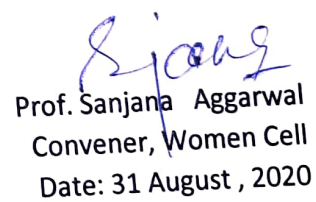 Prof. Sanjana Aggarwal
Convener, Women Cell
Date: 31 August , 2020